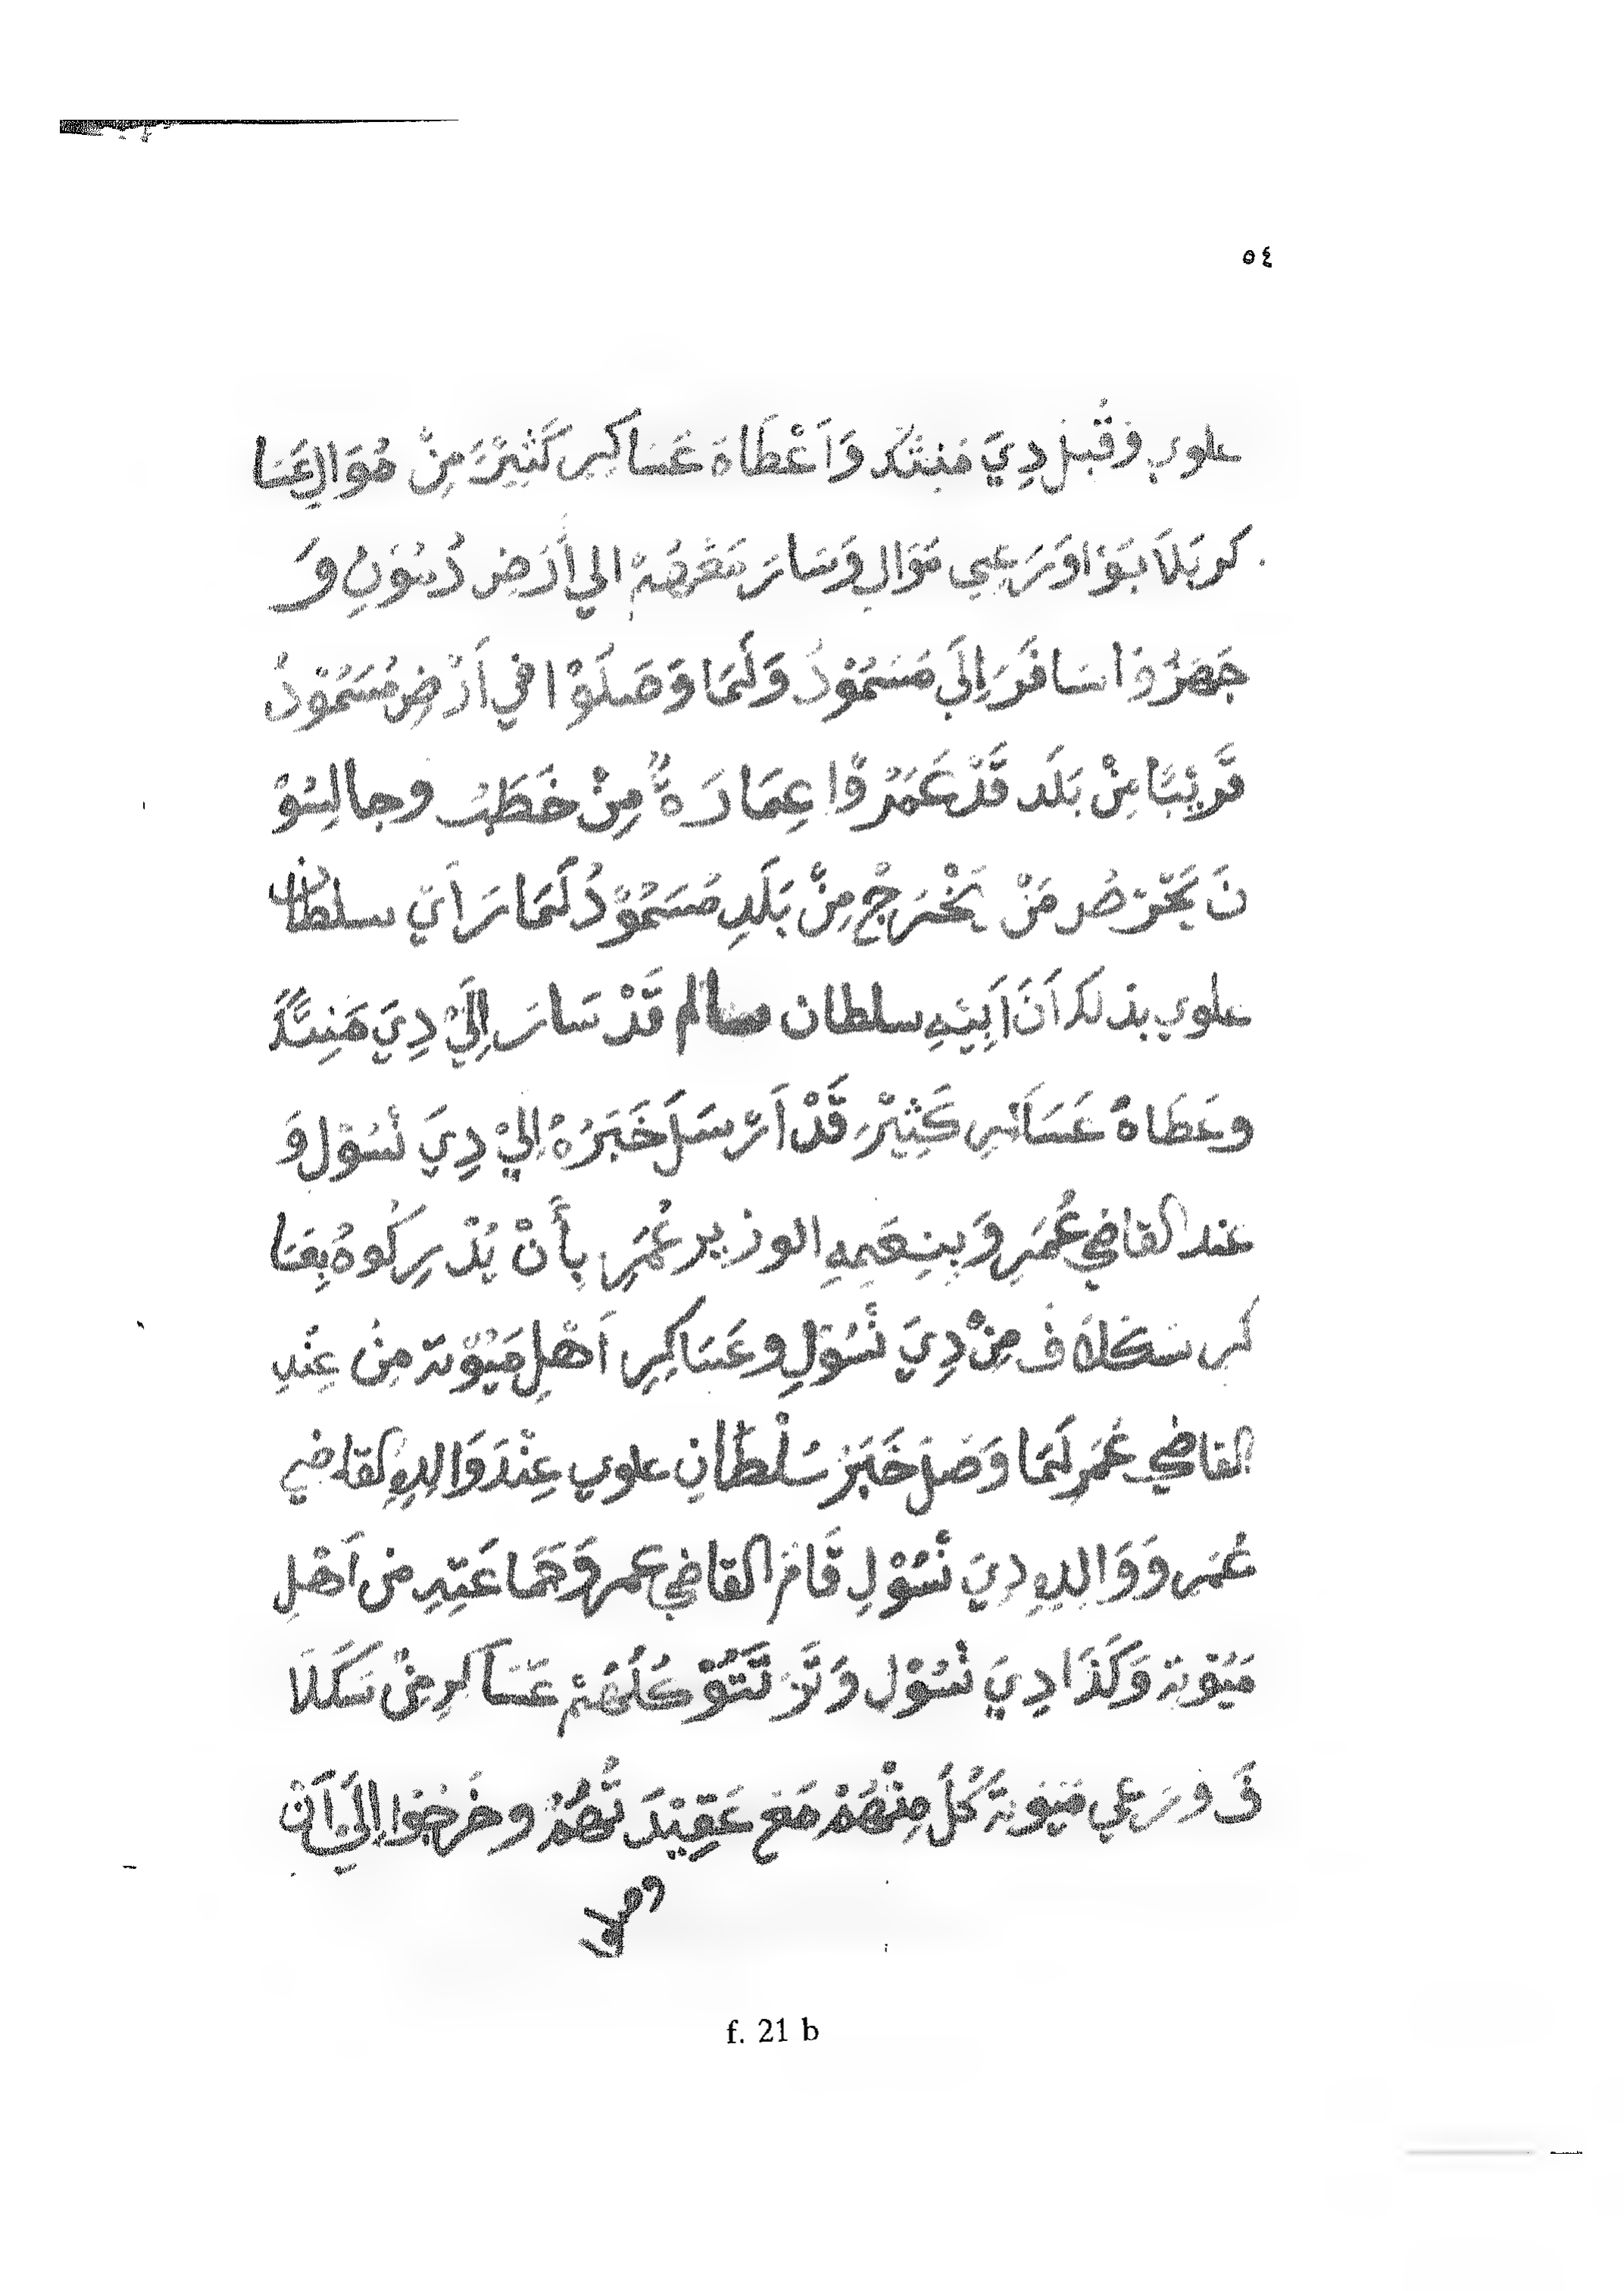 ٥٤
علوي وقبل دِيَ مَنِنتكر وَاَعْطَاهُ عَسَاكِير كَثِيْرَة مِنْ مُوَالِ عَسَا
كر بَلاَبَوْا وَرَعِي مَوَالِ وَسَارَ مَعَهُمْ الي أَرَضِ دُمُوْنِ وَ
جَهَرُوْا سَافَرَ اِلَي مَسَمُوْدُ وَلَمَا وَصَلُوْا في اَرْضِ مُسَمُوْدُ
قَرِيْبًا مِنْ بَلَد قَدْ عَمَرُوْا عِمَارَةً مِنْ خَطَبُ وجالِسُوْ
نَ يَحْرَصُ مَنْ يَخْرَجْ مِنْ بَلَدِ مُسَمُوْدُ لَمَا رَاَيَ سلطان
علوي بذلك اَنَ اَبِيْهِ سلطان سالم قَدْ سَارَ اِلَيْ دِيَ مَنِتَكَرْ
وعَطَاهُ عَسَاكِرِ كَثِيْر قَدْ اَرْسَلَ خَبَرُهُ اِلَيْ دِيَ نْسُوْلِ وَ
عند القاضي عُمَرِ وَبِنِ عَمِهِ الوزير عُمَرِ بِأَنْ يُدْرِكُوهُ بِعَسَا
كر سَكَلاَف مِنْ دِيَ نْسُوْلِ وعَسَاكِرِ اَهْلِ مَيُوْتة مِنْ عِنْدِ
القاضي عُمَر لَمَا وَصَلَ خَبَرْ سُلْطَانِ علوي عِنْدَ وَالِدِهِ القاضي
عُمَر وَوَالِدِهِ دِيَ نْسُوْلِ قَامَ القاضي عمر وَجَمَاعَتِهِ من اَهْلِ
مَيُوْتة وَكَذَا دِيَ نْسُوْل كُلُهُمْ عَسَاكر مِنْ سَكَلاَ
فَ ورَعِي مَيُوتَة كُلَ مِنْهُمْ مَعَ عَقِيْدَتُهُمْ وخَرَجُوا اِلَيْ اَنْ
وصلو
f. 21 b